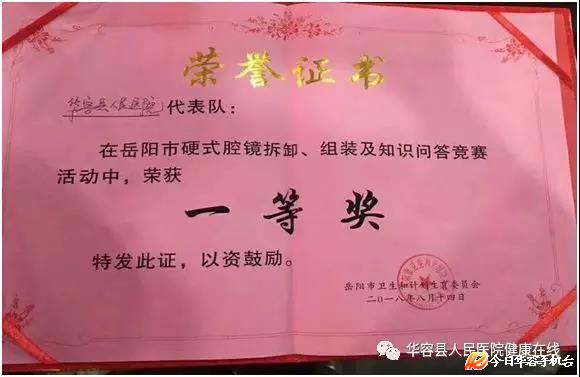 荣誉证书
华容县人民医院代表队：
在岳阳市硬式腔镜拆卸、组装及知识问答竞赛
活动中，荣获
一等奖
特发此证，以资鼓励。
岳阳市卫生和计划生育委员会
二〇一八年八月十四日
华容县人民医院健康在线
今日华容手机台